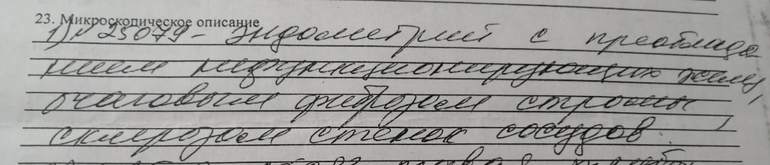 23. Микроскопическое описание
1) № 25079 - Эндометрий с преоблада
нием нефункционирующих желез,
очаговым фиброзом стромы,
склерозом стенок сосудов.